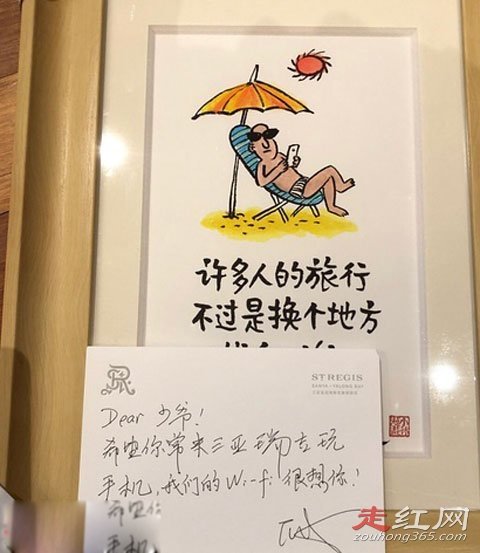 许多人的旅行
不过是换个地方
STREGIS
SANYA · YALONG BAY
Dear 少爷！
希望你常来三亚瑞吉玩
手机，我们的Wi-fi很想你！
希望你
手机
走红网
zouhong365.com